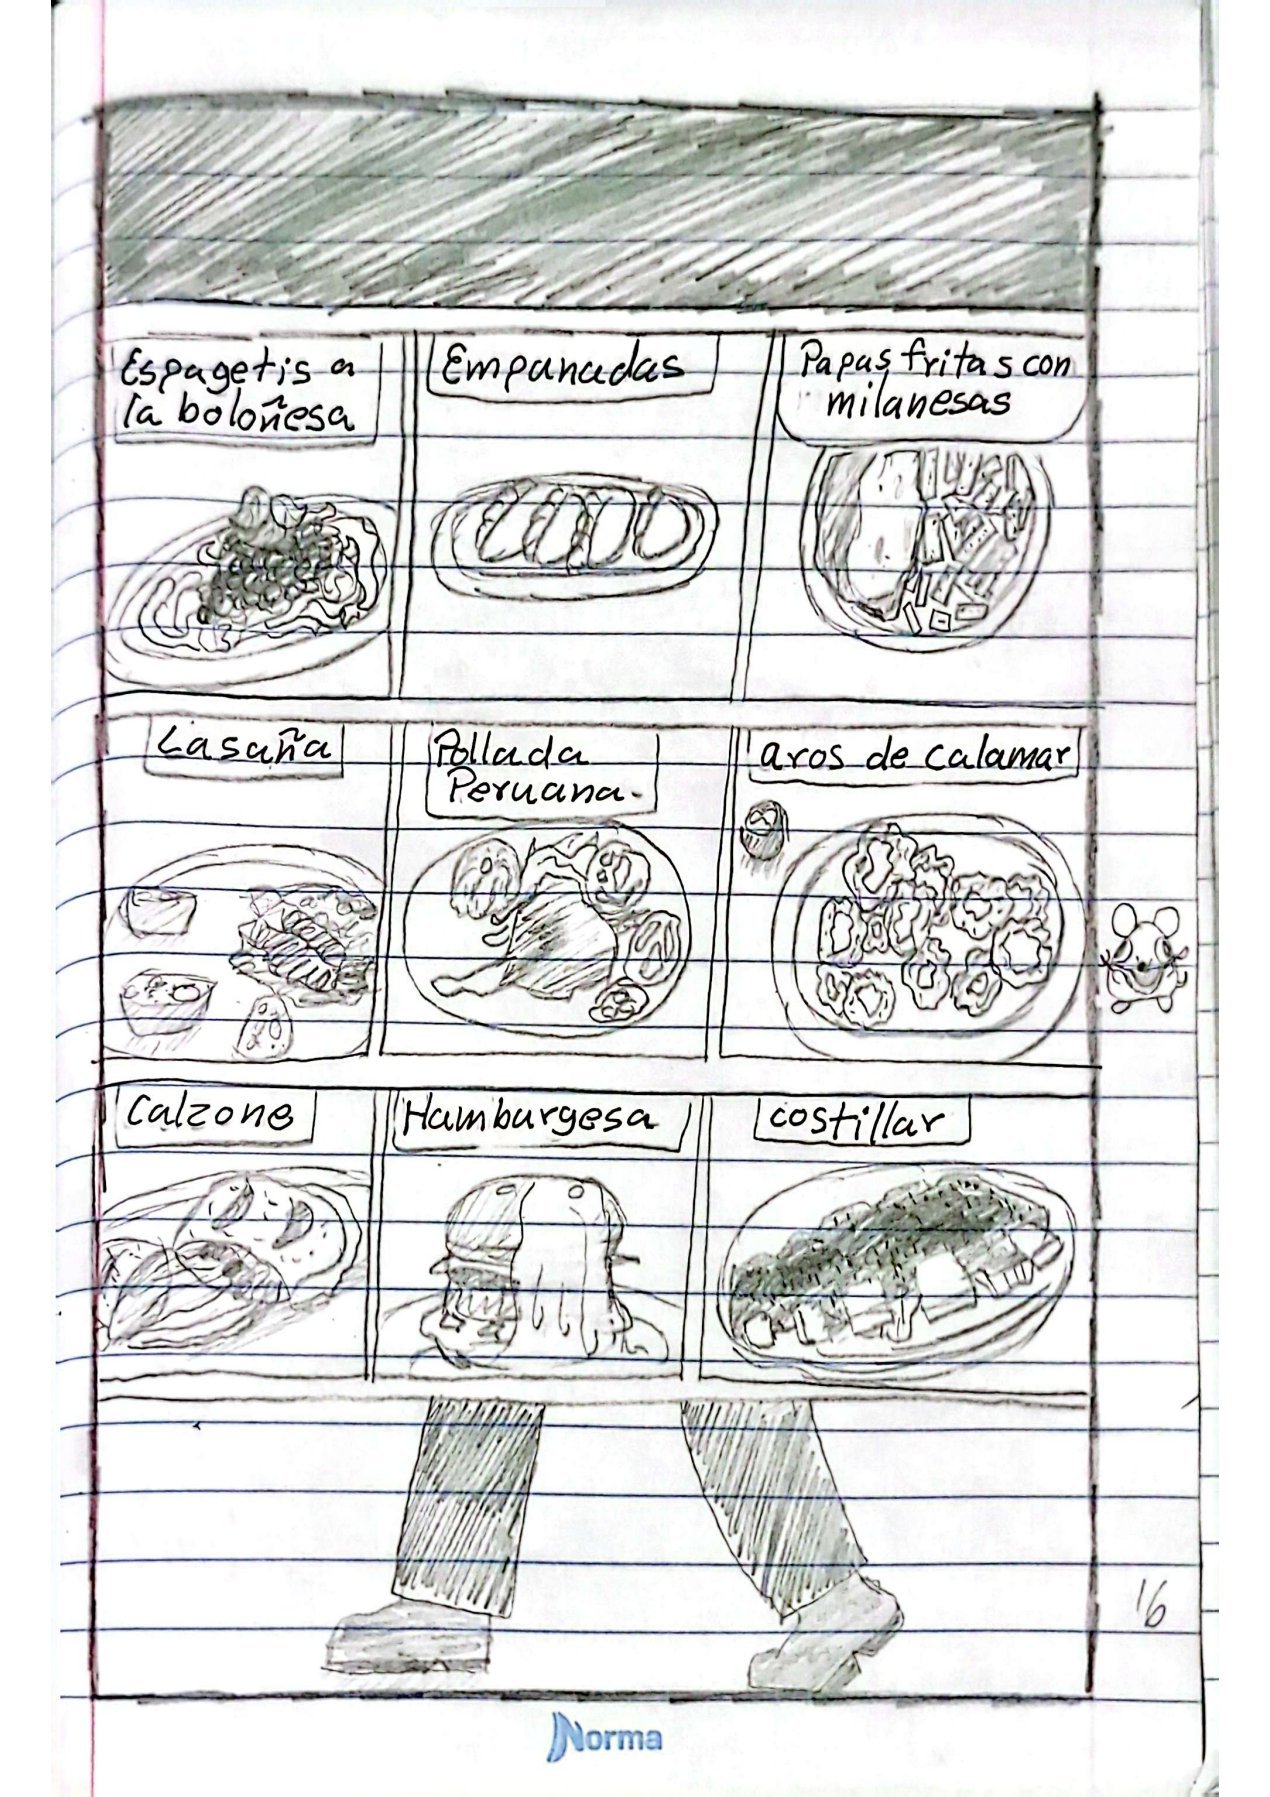 Espagetis a
la boloñesa
Empanadas
Papas fritas con
milanesas
Lasaña
Pollada
Peruana.
aros de calamar
Calzone
Hamburgesa
costillar
16
Norma